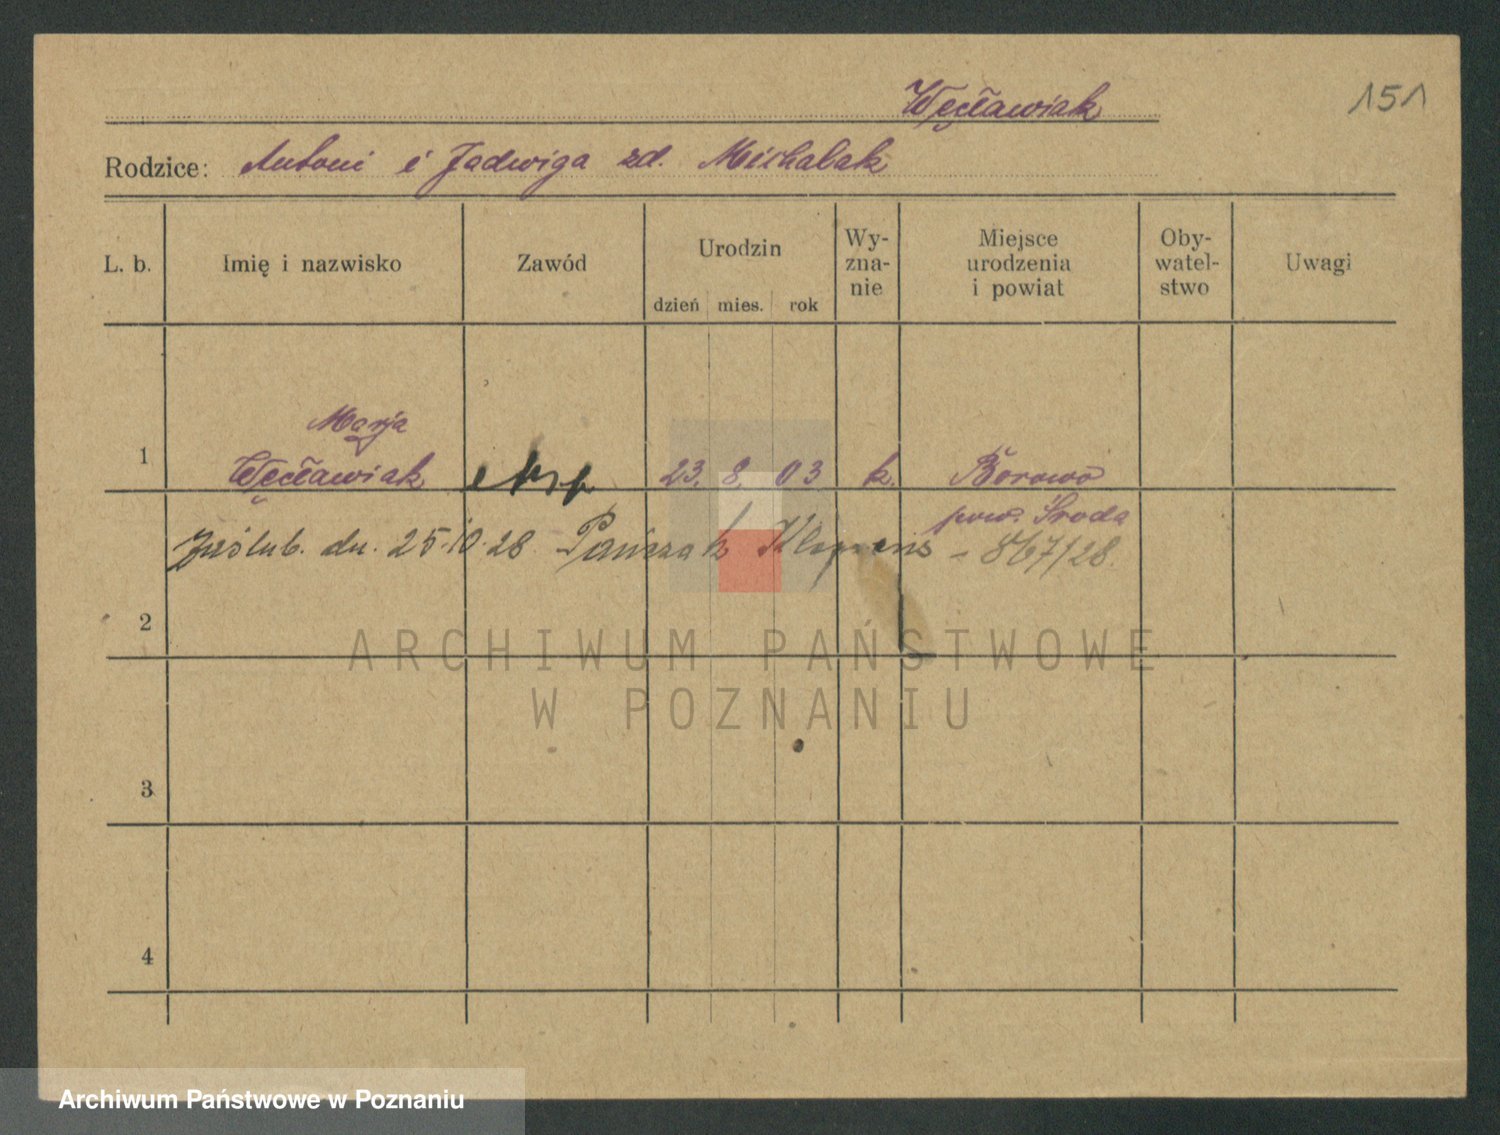 Węcławiak
151
Rodzice: Antoni i Jadwiga zd. Michalak
L. b.
Imię i nazwisko
Zawód
Urodzin
dzień mies. rok
Wy-
zna-
nie
Miejsce
urodzenia
i powiat
Oby-
watel-
stwo
Uwagi
Marja
1 Węcławiak 23. 8. 03 k. Borowo
pow. Środa
zaślub. dn. 25.10.28 Pańczak Klemens - 867/28.
2
ARCHIWUM PAŃSTWOWE
W POZNANIU
3
4
Archiwum Państwowe w Poznaniu